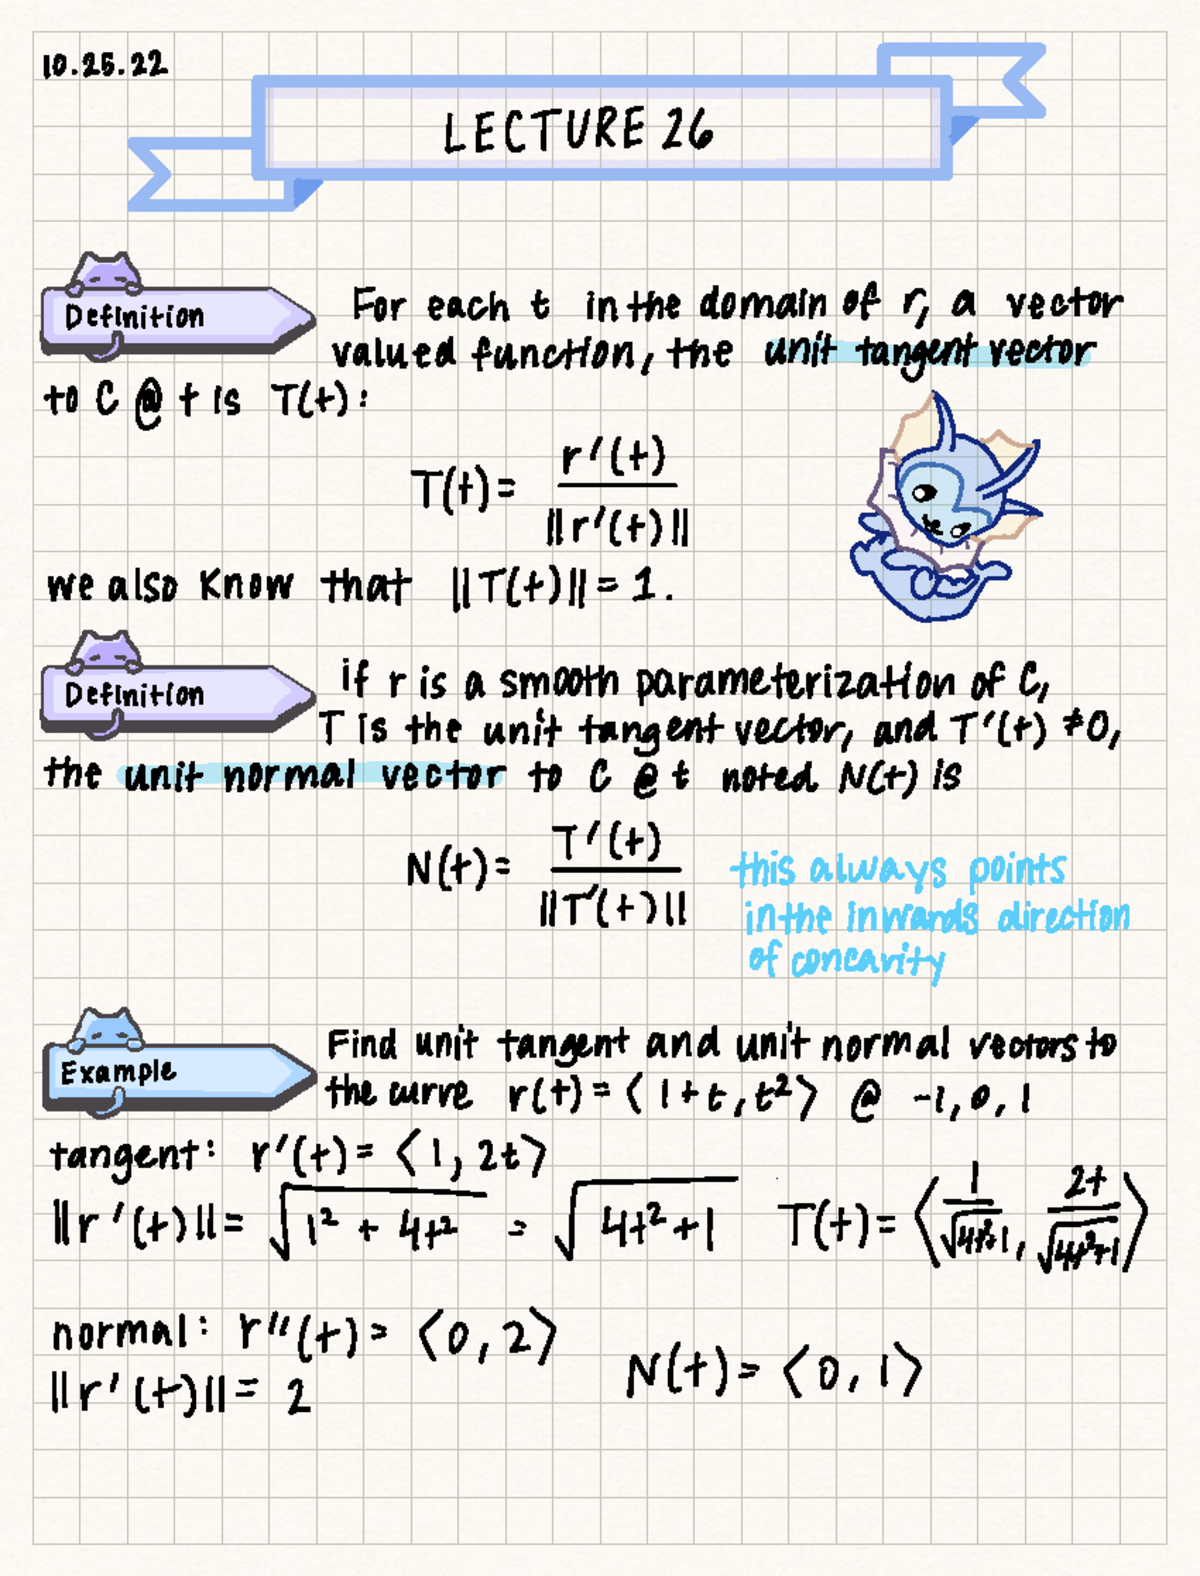 10.25.22
LECTURE 26
Definition For each t in the domain of r, a vector
valued function, the unit tangent vector
to C @ t is T(t):
T(t) = r'(t) / ||r'(t)||
we also know that ||T(t)|| = 1.
Definition if r is a smooth parameterization of C,
T is the unit tangent vector, and T'(t) ≠ 0,
the unit normal vector to C @ t noted N(t) is
N(t) = T'(t) / ||T'(t)||
this always points
in the inwards direction
of concavity
Example Find unit tangent and unit normal vectors to
the curve r(t) = ⟨1+t, t²⟩ @ -1, 0, 1
tangent: r'(t) = ⟨1, 2t⟩
||r'(t)|| = √(1² + 4t²) = √(4t²+1) T(t) = ⟨1/√(4t²+1), 2t/√(4t²+1)⟩
normal: r''(t) = ⟨0, 2⟩
||r'(t)|| = 2 N(t) = ⟨0, 1⟩